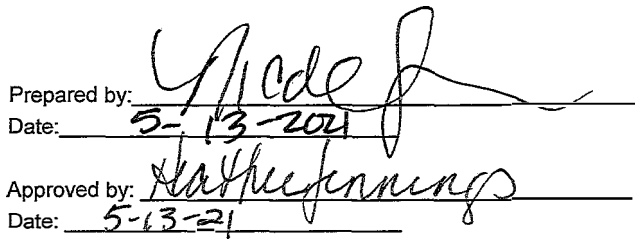 Prepared by: Nicole
Date: 5-13-2021
Approved by: Heather Jennings
Date: 5-13-21